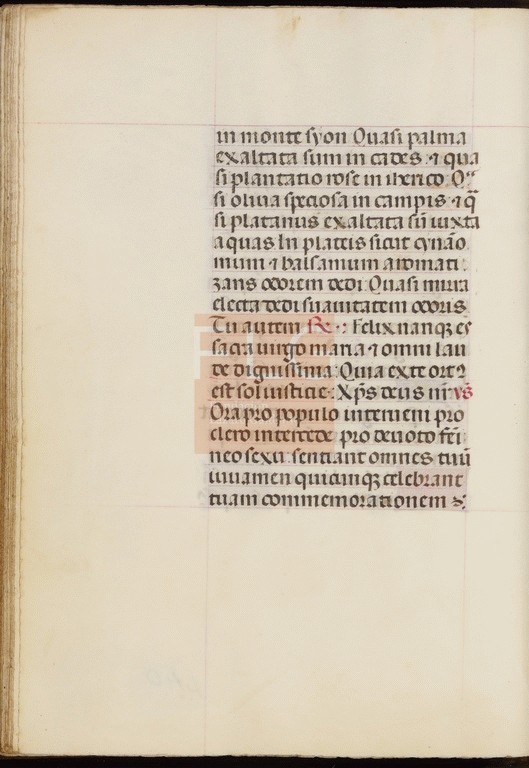 in monte syon Quasi palma
exaltata sum in cades · ⁊ qua
si plantatio rose in iherico · Qᵃ
si oliua speciosa in campis · ⁊ q̃
si platanus exaltata sũ iuxta
aquas In plateis sicut cynão
mum ⁊ balsamum aromati
zans odorem dedi · Quasi mirra
electa dedi suauitatem odoris
Tu autem ℟ · : Felix nanqꝫ es
sacra uirgo maria ⁊ omni lau
de dignissima : Quia ex te ort9
est sol iusticie : Xp̃s deus nr̃ · v̄s
Ora pro populo interueni pro
clero intercede pro deuoto fẽi
neo sexu : sentiant omnes tuũ
iuuamen quicunqꝫ celebrant
tuam commemorationem